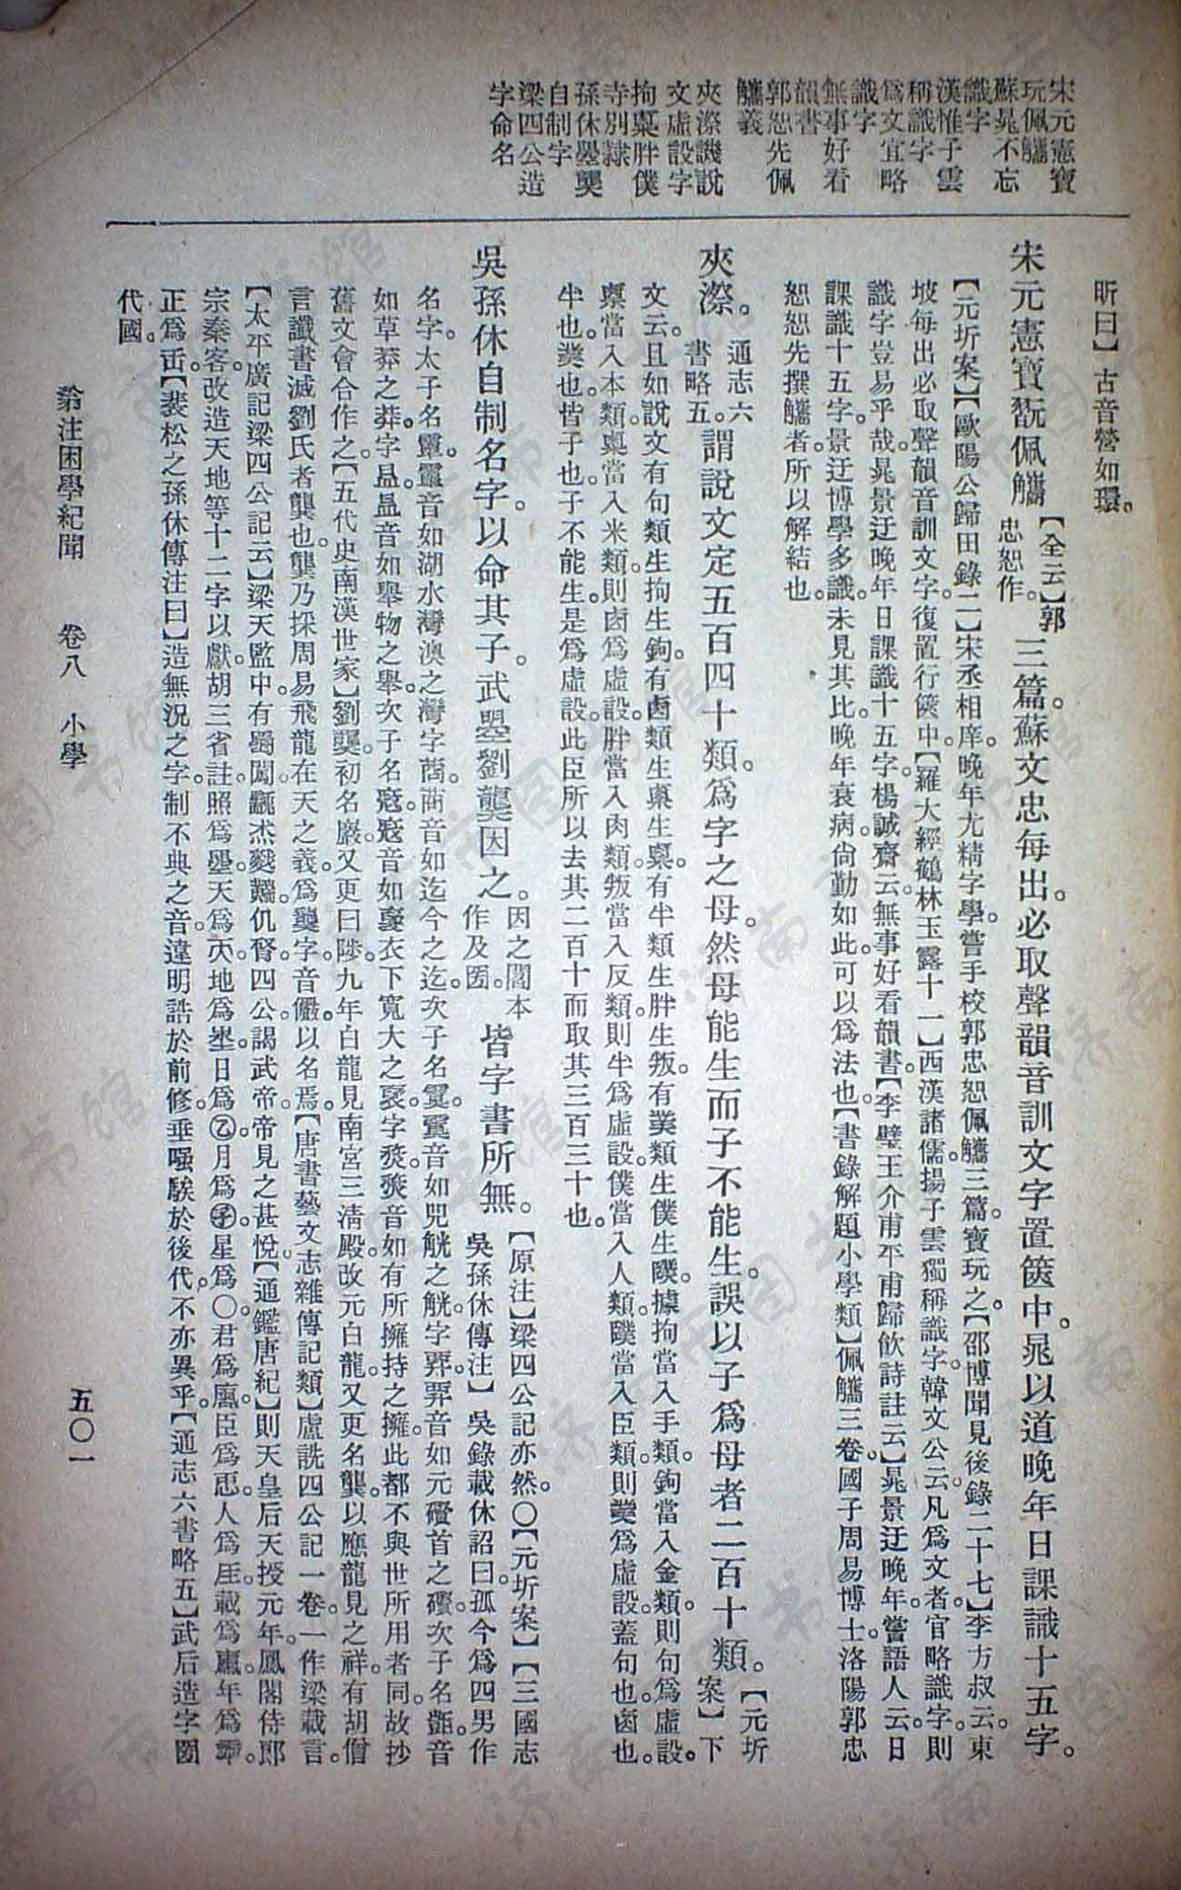 宋元憲寶
玩佩觿
蘇晁不忘
識字
漢惟子雲
稱識字
爲文宜略
識字
無事好看
韻書
郭恕先佩
觿義
夾漈譏說
文虛設字
拘㮚胖僕
寺別隸
孫休曌龑
自制字
梁四公造
字命名
昕曰】古音營如環。
宋元憲寶翫佩觿【全云】郭忠恕作。三篇。蘇文忠每出。必取聲韻音訓文字置篋中。晁以道晚年日課識十五字。
【元圻案】【歐陽公歸田錄二】宋丞相庠。晚年尤精字學。嘗手校郭忠恕佩觿三篇。寶玩之。【邵博聞見後錄二十七】李方叔云。東
坡每出必取聲韻音訓文字。復置行篋中。【羅大經鶴林玉露十一】西漢諸儒。揚子雲獨稱識字。韓文公云。凡爲文者。宜略識字。則
識字豈易乎哉。晁景迂晚年日課識十五字。楊誠齋云。無事好看韻書。【李璧王介甫平甫歸飲詩註云】晁景迂晚年。嘗語人云。日
課識十五字。景迂博學多識。未見其比。晚年衰病。尙勤如此。可以爲法也。【書錄解題小學類】佩觿三卷。國子周易博士洛陽郭忠
恕恕先撰。觿者。所以解結也。
夾漈。通志六書略五。謂說文定五百四十類。爲字之母。然母能生而子不能生。誤以子爲母者二百十類。【元圻案】下
文云。且如說文有句類生拘生鉤。有㔽類生㮚生㮚。有半類生胖生叛。有菐類生僕生䑑。據拘當入手類。鉤當入金類。則句爲虛設。
㮚當入本類。㮚當入米類。則㔽爲虛設。胖當入肉類。叛當入反類。則半爲虛設。僕當入人類。䑑當入臣類。則菐爲虛設。蓋句也。㔽也。
半也。菐也。皆子也。子不能生。是爲虛設。此臣所以去其二百十而取其三百三十也。
吳孫休自制名字。以命其子。武曌劉龑因之。因之閣本作及。皆字書所無。【原注】梁四公記亦然。〇【元圻案】【三國志吳孫休傳注】吳錄載休詔曰。孤今爲四男作
名字。太子名𩅦。𩅦音如湖水灣澳之灣。字𦯶。𦯶音如迄今之迄。次子名𩃙。𩃙音如兕觥之觥。字𢍰。𢍰音如元礥首之礥。次子名壾。音
如草莽之莽。字昷。昷音如舉物之舉。次子名𠅨。𠅨音如褒衣下寬大之褒。字㷏。㷏音如有所擁持之擁。此都不與世所用者同。故抄
舊文會合作之。【五代史南漢世家】劉龑。初名巖。又更曰陟。九年白龍見南宮三淸殿。改元白龍。又更名龔。以應龍見之祥。有胡僧
言讖書滅劉氏者龔也。龔乃採周易飛龍在天之義。爲龑字。音儼。以名焉。【唐書藝文志雜傳記類】盧詵四公記一卷。一作梁載言。
【太平廣記梁四公記云】梁天監中。有蜀闖䨲杰𩦂䵎仉𦜕四公。謁武帝。帝見之甚悅。【通鑑唐紀】則天皇后天授元年。鳳閣侍郎
宗秦客。改造天地等十二字以獻。胡三省註。照爲曌。天爲𠀑。地爲埊。日爲𡆠。月爲囝。星爲〇。君爲𠺞。臣爲𢘑。人爲𤯔。載爲𡕀。年爲𠡦。
正爲𠙺。【裴松之孫休傳注曰】造無況之字。制不典之音。違明誥於前修。垂嗤騃於後代。不亦異乎。【通志六書略五】武后造字圀
代國。
翁注困學紀聞　卷八　小學
五〇一